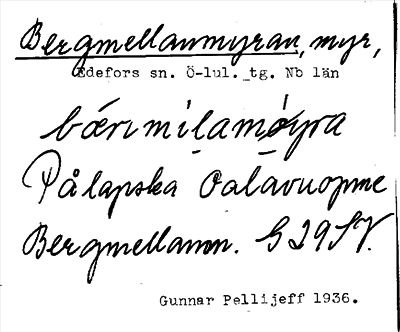 Bergmellanmyran, myr,
Edefors sn. Ö-lul. tg. Nb län
bǽrımịlamǿyra
På lapska Oalavuopme
Bergmellanm. G 29 SV.
Gunnar Pellijeff 1936.